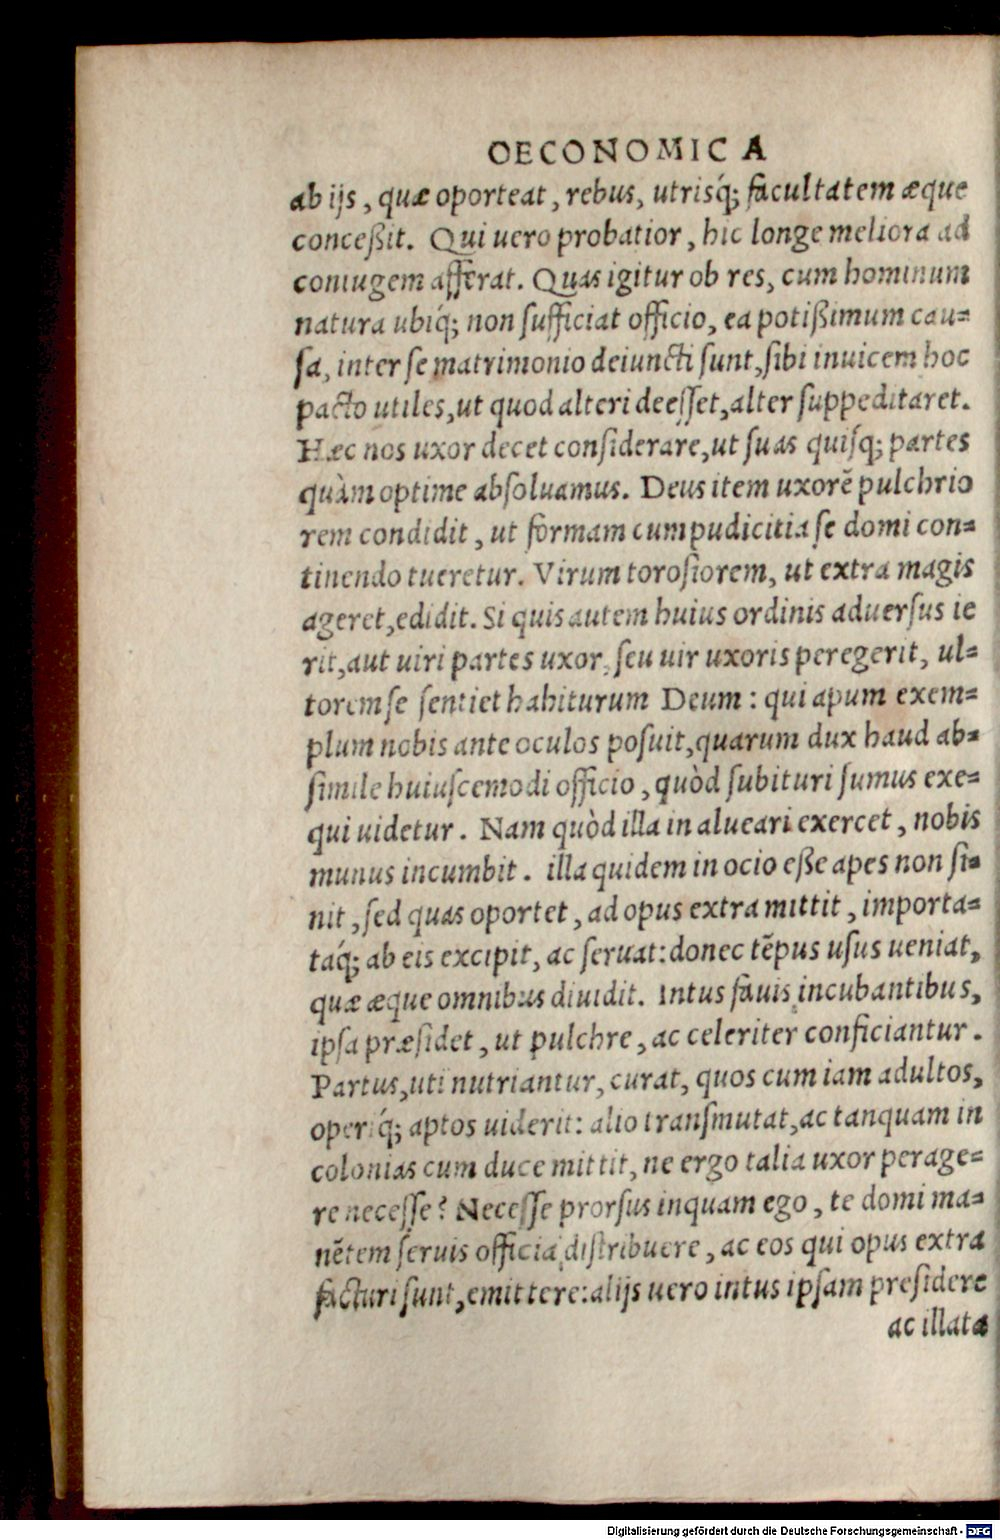 OECONOMICA
ab ijs, quæ oporteat, rebus, utrisq́; facultatem æque
conceßit. Qui uero probatior, hic longe meliora ad
coniugem afferat. Quas igitur ob res, cum hominum
natura ubiq́; non sufficiat officio, ea potißimum cau=
sa, inter se matrimonio deiuncti sunt, sibi inuicem hoc
pacto utiles, ut quod alteri deesset, alter suppeditaret.
Hæc nos uxor decet considerare, ut suas quisq́; partes
quàm optime absoluamus. Deus item uxorē pulchrio
rem condidit, ut formam cum pudicitia se domi con=
tinendo tueretur. Virum torosiorem, ut extra magis
ageret, edidit. Si quis autem huius ordinis aduersus ie
rit, aut uiri partes uxor, seu uir uxoris peregerit, ul=
torem se sentiet habiturum Deum: qui apum exem=
plum nobis ante oculos posuit, quarum dux haud ab=
simile huiuscemodi officio, quòd subituri sumus exe=
qui uidetur. Nam quòd illa in alueari exercet, nobis
munus incumbit. illa quidem in ocio eße apes non si=
nit, sed quas oportet, ad opus extra mittit, importa=
taq́; ab eis excipit, ac seruat: donec tēpus usus ueniat,
quæ æque omnibus diuidit. Intus fauis incubantibus,
ipsa præsidet, ut pulchre, ac celeriter conficiantur.
Partus, uti nutriantur, curat, quos cum iam adultos,
operiq́; aptos uiderit: alio transmutat, ac tanquam in
colonias cum duce mittit, ne ergo talia uxor perage=
re necesse? Necesse prorsus inquam ego, te domi ma=
nētem seruis officia distribuere, ac eos qui opus extra
facturi sunt, emittere: alijs uero intus ipsam presidere
ac illata
Digitalisierung gefördert durch die Deutsche Forschungsgemeinschaft - DFG